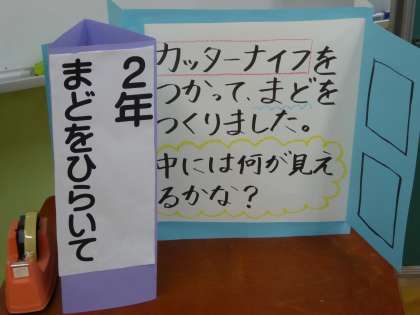 2年
まどをひらいて
カッターナイフを
つかって、まどを
つくりました。
中には何が見え
るかな？